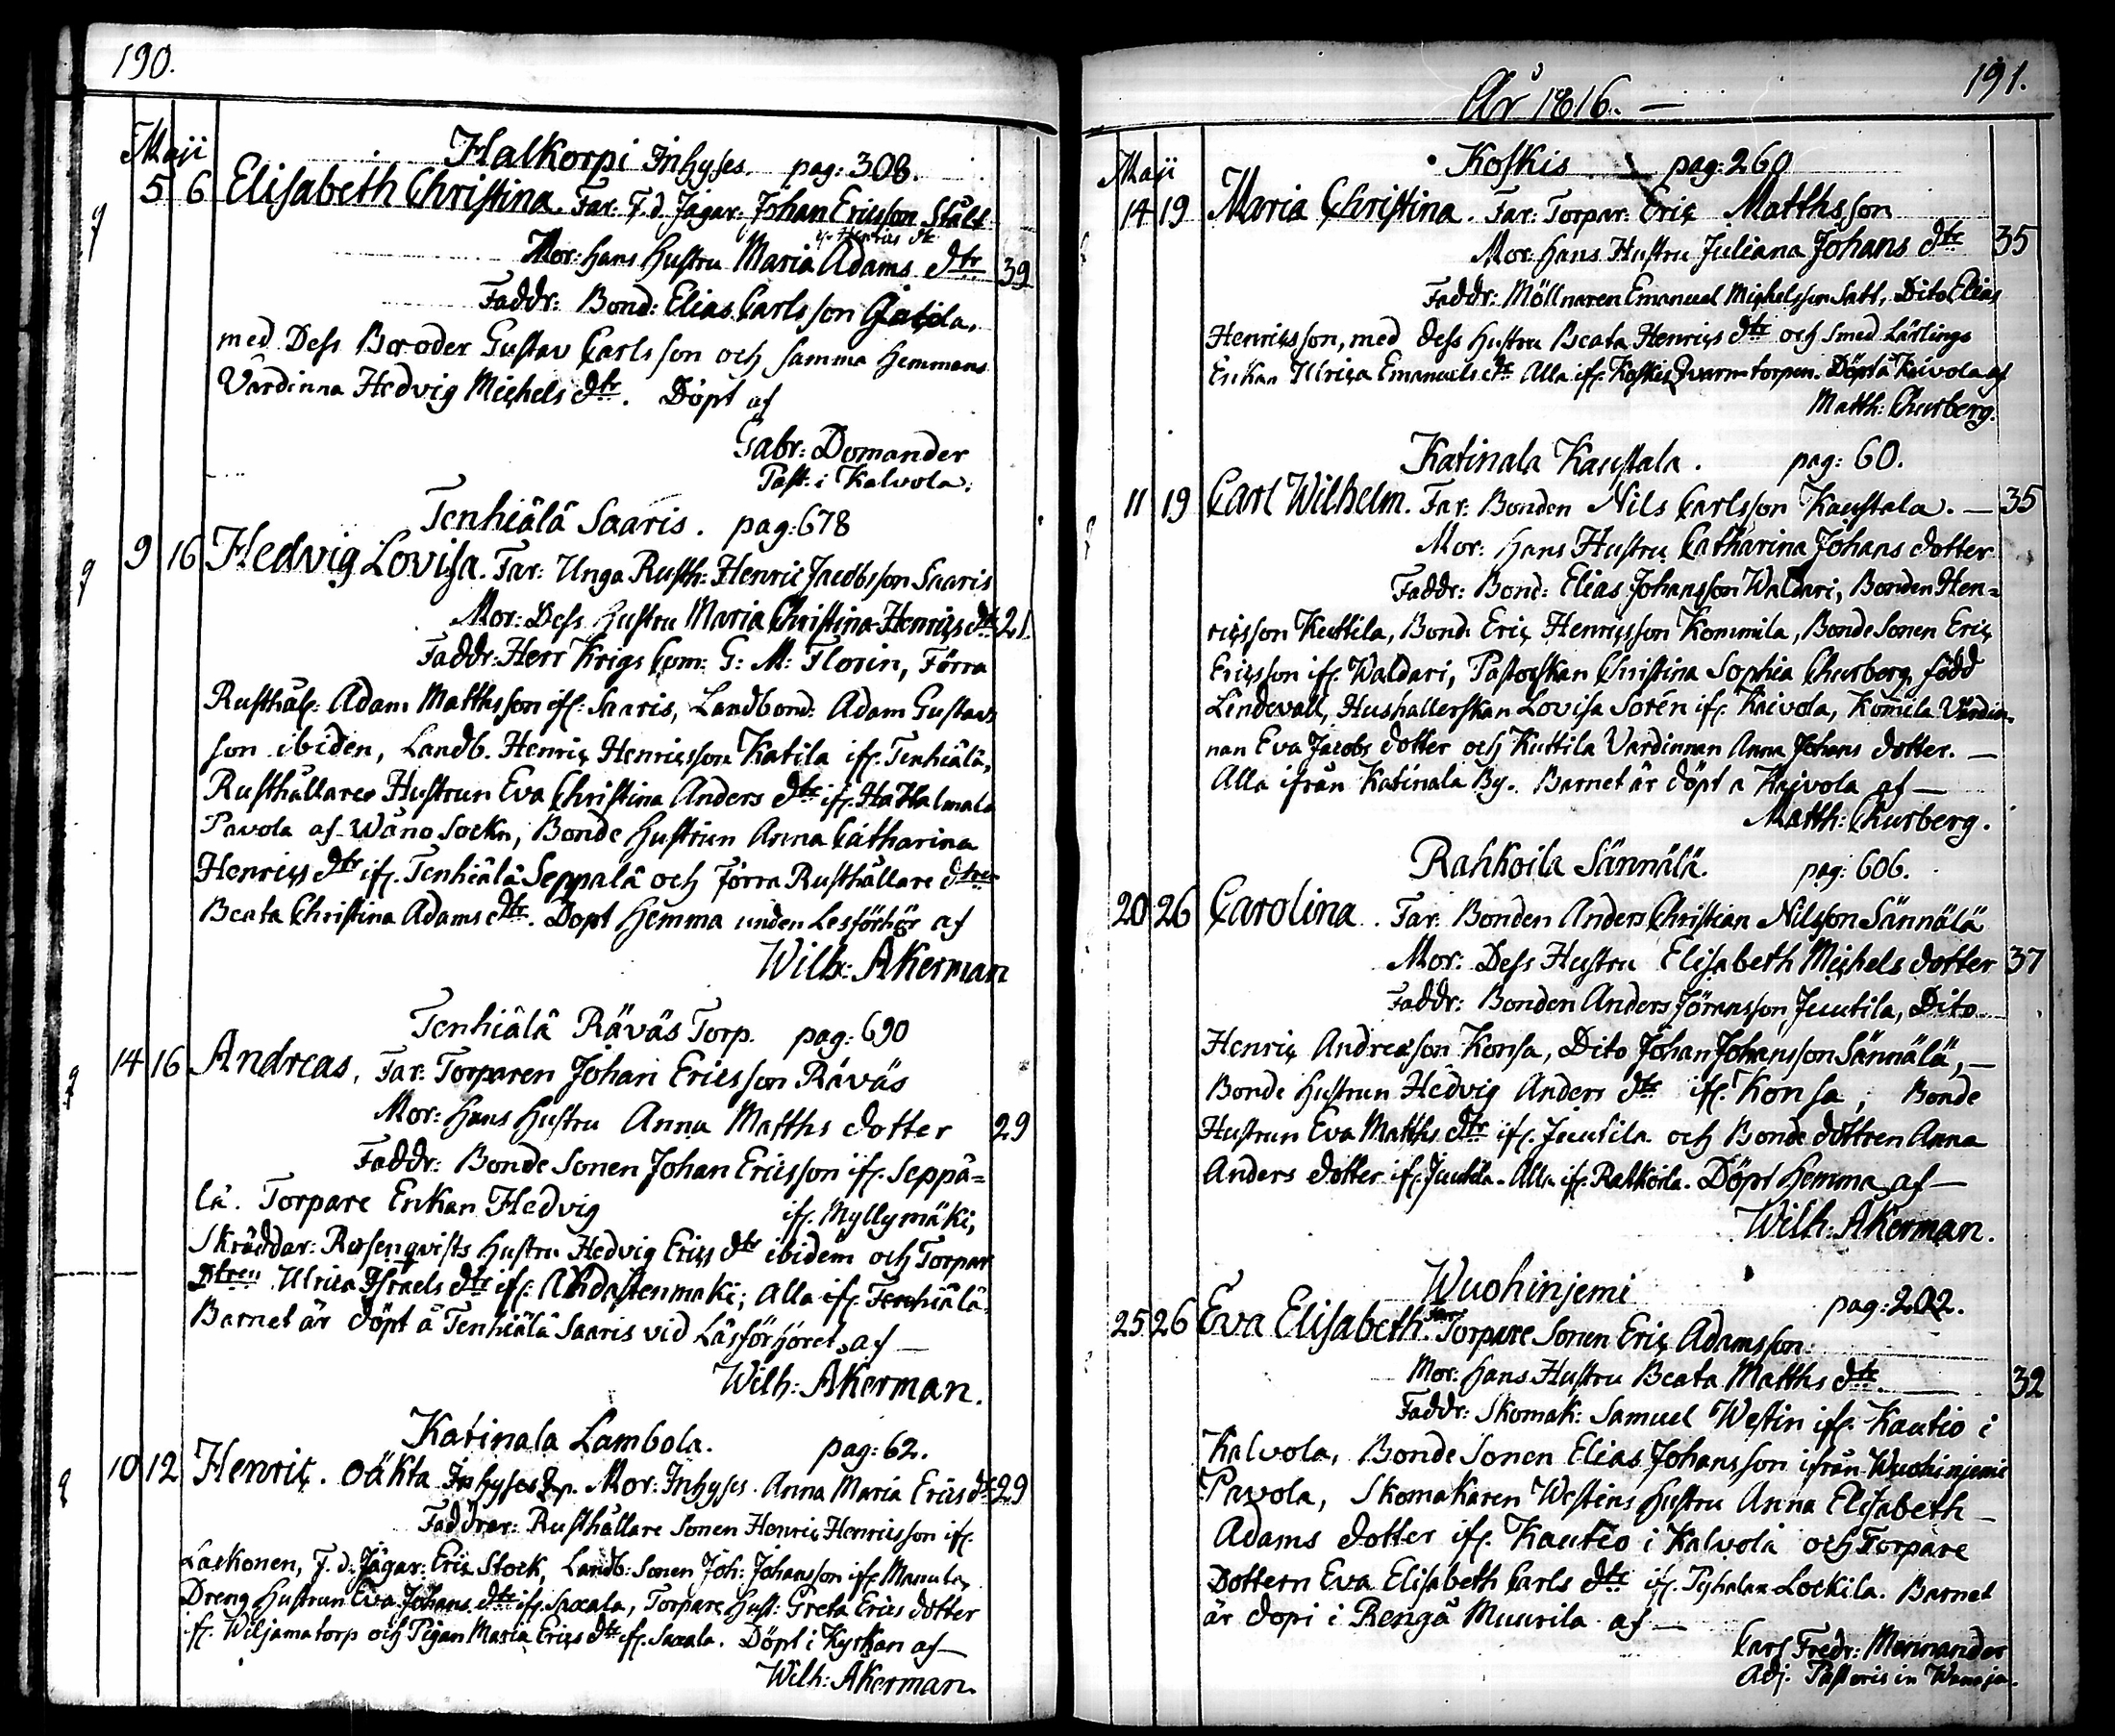 190.
Maji
Halkorpi Inhyses. pag: 308.
5 6 Elisabeth Christina. Far: F.d. Jägar: Johan Ericsson Stålt
Mor: hans Hustru Maria Adams dtr 39
Faddr: Bond: Elias Carlsson
med Dess Broder Gustav Carlsson och samma Hemmans
Värdinna Hedvig Michels dtr. Döpt af
Gabr: Domander
Past: i Kalvola.
Tenhiälä Saaris. pag: 678
9 16 Hedvig Lovisa. Far: Unga Rusth: Henric Jacobsson Saaris
Mor: Dess Hustru Maria Christina Henrics dtr 21.
Faddr: Herr Krigs Com: G: M: Florin, Förra
Rusthål: Adam Matthsson if. Saaris, Landbond: Adam Gustavs
son ibiden, Landb. Henric Henricsson Katila if. Tenhiälä,
Rusthållares Hustrun Eva Christina Anders dtr if.
Pavola af Wåno Sockn, Bonde hustrun Anna Catharina
Henrics dtr if. Tenhiälä Seppälä och Förra Rusthållare dtren
Beata Christina Adams dtr. Döpt Hemma under Lesförhör af
Wilh: Åkerman
Tenhiälä Räväs Torp. pag: 690
14 16 Andreas. Far: Torparen Johan Ericsson Räväs
Mor: hans hustru Anna Matths dotter 29
Faddr: Bonde Sonen Johan Ericsson if. Seppä=
lä. Torpare Enkan Hedvig if. Myllymäki,
Skräddar: Rosenqvists hustru Hedvig Erics dtr ibidem och Torpar
Dtren Ulrica Israels dtr if. Ahdastenmäki; Alla if. Tenhiälä.
Barnet är döpt å Tenhiälä Saaris vid Läsförhöret af —
Wilh: Åkerman.
Katinala Lambola. pag: 62.
10 12 Henric. Oäkta Mor: Inhyses. Anna Maria Erics dr 29
Faddrar: Rusthållare Sonen Henric Henricsson if.
Laskonen, F. d. Jägar: Eric Stock, Landb: Sonen Joh: Johansson if. Manula,
Dreng Hustrun Eva Johans dtr if. Saxala, Torpare Hust: Greta Erics dotter
if. Wiljama torp och Pigan Maria Erics dtr if. Saxala. Döpt i Kyrkan af —
Wilh: Åkerman.
191.
År 1816. —
Maji
Koskis pag: 260
14 19 Maria Christina. Far: Torpar: Eric Matthsson
Mor: hans Hustru Juliana Johans dtr 35
Faddr: Möllnaren Emanuel Michelsson Satt, Dito Elias
Henricsson, med dess hustru Beata Henrics dtr och Smed Lärlings
Enkan Ulrica Emanuels dtr Alla if. Koskis Qvarn torpen. Döpt å Kaivola af
Matth: Churberg.
Katinala Kaustala. pag: 60.
11 19 Carl Wilhelm. Far: Bonden Nils Carlsson Kaustala. — 35
Mor: hans Hustru Catharina Johans dotter
Faddr: Bond: Elias Johansson Waldari, Bonden Hen=
ricsson Kuttila, Bond: Eric Henricsson Kommila, Bonde Sonen Eric
Ericsson if. Waldari, Pastorskan Christina Sophia Churberg född
Lindevall, Hushallerskan Lovisa Sorén if. Kaivola, Komila Värdin-
nan Eva Jacobs dotter och Kuttila Vardinnan Anna Johans dotter. —
Alla ifrån Katinala By. Barnet är döpt a Kaivola af —
Matth: Churberg.
Rahkoila Sännälä. pag: 606.
20 26 Carolina. Far: Bonden Anders Christian Nilsson Sännälä
Mor: Dess Hustru Elisabeth Michels dotter 37
Faddr: Bonden Anders Jöransson Juutila, Dito
Henric Andreasson Konsa, Dito Johan Johansson Sännälä, —
Bonde Hustrun Hedvig Anders dtr if. Konsa, Bonde
Hustrun Eva Matths dtr if. Juutila och Bonde dottren Anna
Anders dotter if. Juutila. Alla if. Rahkoila. Döpt Hemma af —
Wilh: Åkerman.
Wuohinjemi pag: 202.
25 26 Eva Elisabeth. Far: Torpare Sonen Eric Adamsson.
Mor: hans Hustru Beata Matths dtr. 32
Faddr: Skomak: Samuel Westin if. Kautio i
Kalvola, Bonde Sonen Elias Johansson ifrån Wuohinjemi
Pavola, Skomakaren Westins hustru Anna Elisabeth —
Adams dotter if. Kautio i Kalvola och Torpare
Dottern Eva Elisabeth Carls dtr if. Lockila. Barnet
är döpt i Rengå Muurila af —
Carl Fredr: Mennander
Adj: Pastoris in